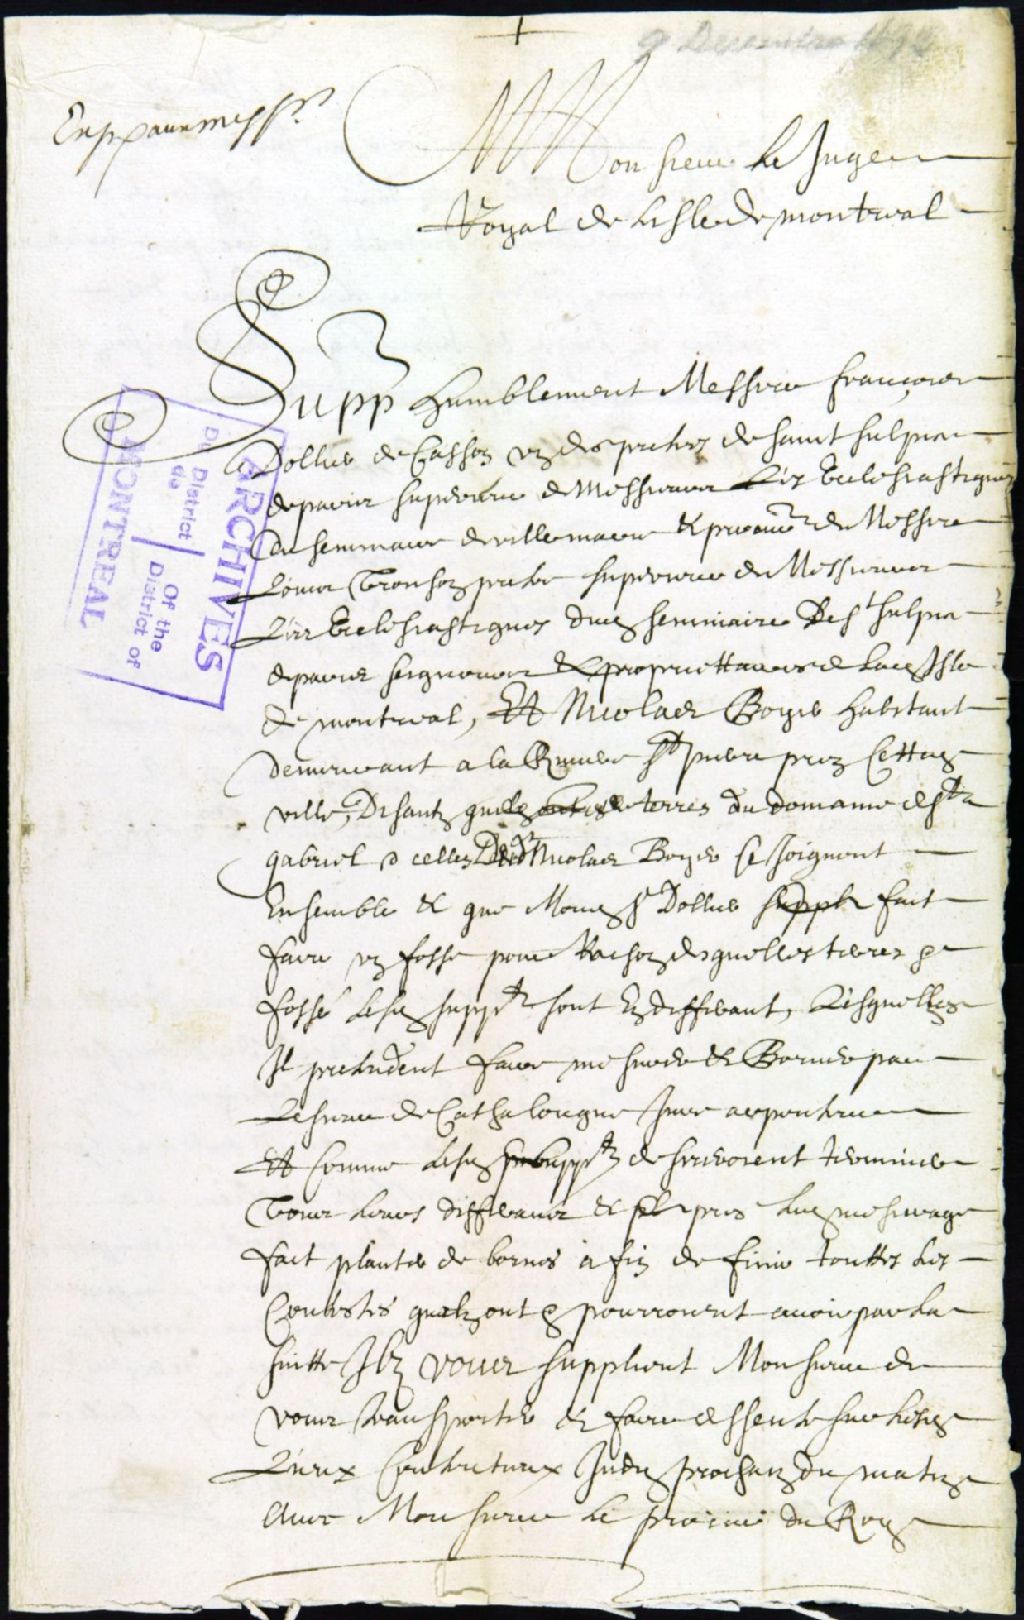 9 Decembre
Monsieur Le Juge
Royal de Lisle de montreal
Supp humblement Messire françois
Dollier de Casson un des prestres de saint sulpice
de paris superieur de Messieurs Les Ecclesiastiques
du seminaire de ville marie & procur de Messire
Louis Tronson prestre superieur de Messieurs
Les Ecclesiastiques dud seminaire De st sulpice
de paris seigneurs & proprietaires de lad Isle
de montreal, Et Nicolas Boyer habitant
demeurant a la Riviere st pierre prez Cette
ville, Disantz que les terres du domaine de st
gabriel & celles Dud Nicolas Boyer se Joignent
Ensemble et que Mond sr Dollier fait
faire un fossé pour Raison desquelles terres &
fossé Lesd suppts sont En different, Lesquelles
Il pretendent faire mesurer & Borner par
Le sieur de Cathalougne Juré arpenteur
Et comme Lesd suppts desireroient terminer
Tous leurs differants et pres led mesurage
fait planter de bornes afin de finir touttes les
Contestes quilz ont & pourroient avoir par La
suitte Ilz vous supplient Monsieur de
vous transporter et faire dessente sur lesd
Lieux Contentieux Judy prochain du matin
Avec Monsieur Le procur du Roy
ARCHIVES
Du District de
Of the District of
MONTREAL